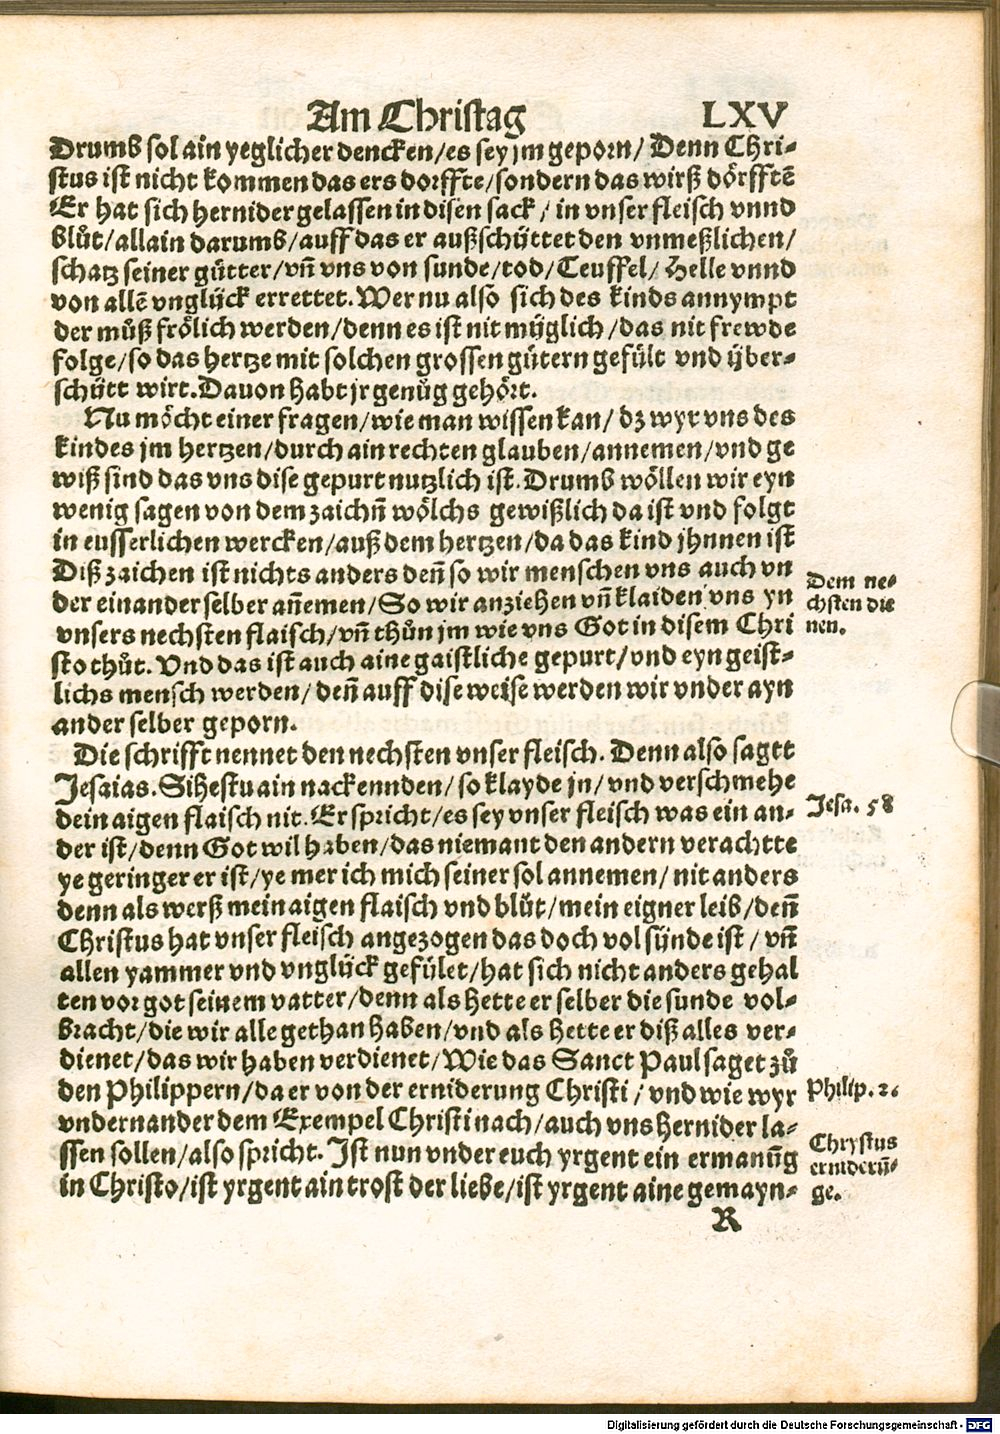 Am Christag LXV
Drumb sol ain yeglicher dencken/es sey jm geporn/ Denn Chri⸗
stus ist nicht kommen das ers dorffte/sondern das wirß dörfftẽ
Er hat sich hernider gelassen in disen sack/ in vnser fleisch vnnd
blůt/allain darumb/auff das er außschüttet den vnmeßlichen/
schatz seiner gütter/vñ vns von sunde/tod/Teuffel/ Helle vnnd
von allẽ vnglück errettet. Wer nu also sich des kinds annympt
der můß frölich werden/denn es ist nit müglich/das nit frewde
folge/so das hertze mit solchen grossen gütern gefült vnd über⸗
schütt wirt. Dauon habt jr genůg gehört.
Nu möcht einer fragen/wie man wissen kan/ dz wyr vns des
kindes jm hertzen/durch ain rechten glauben/annemen/vnd ge
wiß sind das vns dise gepurt nutzlich ist. Drumb wöllen wir eyn
wenig sagen von dem zaichñ wölchs gewißlich da ist vnd folgt
in eusserlichen wercken/auß dem hertzen/da das kind jhnnen ist
Diß zaichen ist nichts anders deñ so wir menschen vns auch vn
der einander selber añemen/So wir anziehen vñ klaiden vns yn
vnsers nechsten flaisch/vñ thůn jm wie vns Got in disem Chri
sto thůt. Vnd das ist auch aine gaistliche gepurt/vnd eyn geist⸗
lichs mensch werden/ deñ auff dise weise werden wir vnder ayn
ander selber geporn.
Dem ne⸗
chsten die
nen.
Die schrifft nennet den nechsten vnser fleisch. Denn also sagtt
Jesaias. Sihestu ain nackennden/so klayde jn/vnd verschmehe
dein aigen flaisch nit. Er spricht/es sey vnser fleisch was ein an⸗
der ist/denn Got wil haben/das niemant den andern verachtte
ye geringer er ist/ye mer ich mich seiner sol annemen/ nit anders
denn als werß mein aigen flaisch vnd blůt/mein eigner leib/deñ
Christus hat vnser fleisch angezogen das doch vol sünde ist/ vñ
allen yammer vnd vnglück gefület/hat sich nicht anders gehal
ten vor got seinem vatter/denn als hette er selber die sunde vol⸗
bracht/die wir alle gethan haben/vnd als hette er diß alles ver⸗
dienet/das wir haben verdienet/Wie das Sanct Paul saget zů
den Philippern/da er von der erniderung Christi/ vnd wie wyr
vndernander dem Exempel Christi nach/auch vns hernider la⸗
ssen sollen/also spricht. Ist nun vnder euch yrgent ein ermanũg
in Christo/ist yrgent ain trost der liebe/ist yrgent aine gemayn⸗
Jesa. 58
Philip. 2.
Chrystus
erniderũ⸗
ge.
R
Digitalisierung gefördert durch die Deutsche Forschungsgemeinschaft - DFG